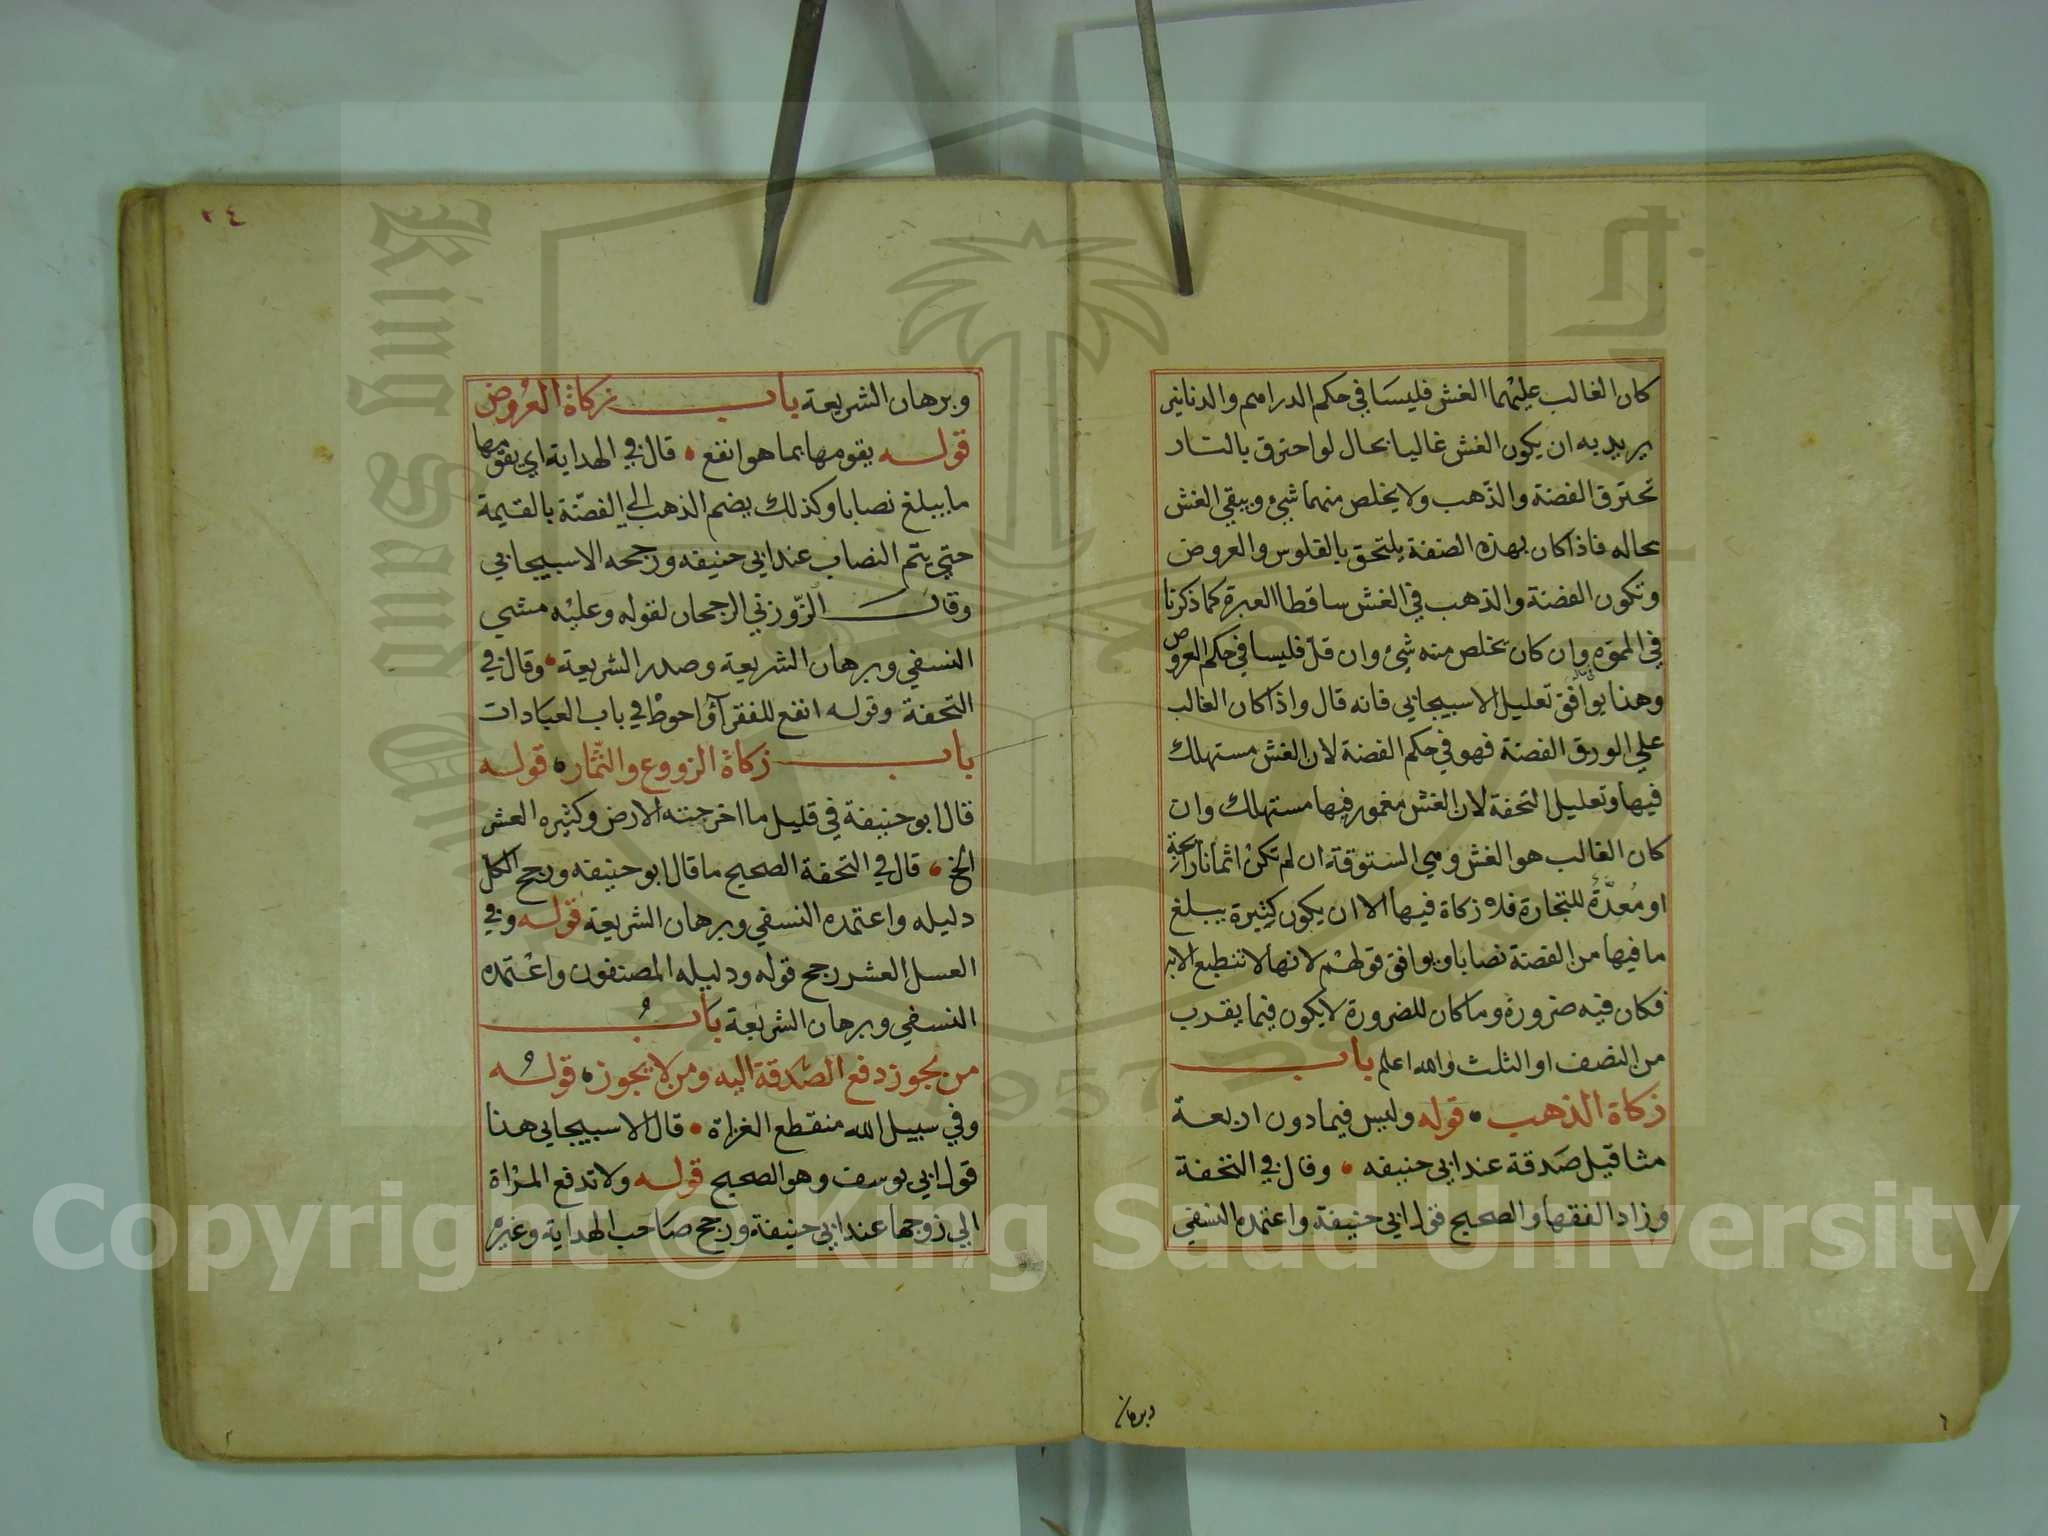 كان الغالب عليهما الغش فليسا في حكم الدراهم والدنانير
يريد به ان يكون الغش غالبا بحال لو احترق بالنار
تحترق الفضة والذهب ولا يخلص منهما شيئ ويبقي الغش
بحاله فاذا كان بهذه الصفة يلتحق بالفلوس والعروض
وتكون الفضة والذهب في الغش ساقطا العبرة كما ذكرنا
في المموه وان كان يخلص منه شيئ وان قل فليسا في حكم العروض
وهذا يوافق تعليل الاسبيجابي فانه قال واذا كان الغالب
علي الورق الفضة فهو في حكم الفضة لان الغش مستهلك
فيها وتعليل التحفة لان الغش مغمور فيها مستهلك وان
كان الغالب هو الغش وهي الستوقة ان لم تكن اثمانا رايجة
او معدّة للتجارة فلا زكاة فيها الا ان يكون كثيرة يبلغ
ما فيها من الفضة نصابا ويوافق قولهم لانها لا تنطبع الا به
فكان فيه ضرورة وما كان للضرورة لا يكون فيما يقرب
من النصف او الثلث والله اعلم باب
زكاة الذهب قوله وليس فيما دون اربعة
مثاقيل صدقة عند ابي حنيفه وقال في التحفة
وزاد الفقها والصحيح قول ابي حنيفة واعتمده النسفي
وبرهان
٢٤
وبرهان الشريعة باب زكاة العروض
قوله يقومها بما هو انفع قال في الهداية اي يقومها
ما يبلغ نصابا وكذلك يضم الذهب الي الفضة بالقيمة
حتي يتم النصاب عند ابي حنيفه ورجحه الاسبيجابي
وقال الزوزني الرجحان لقوله وعليه مشي
النسفي وبرهان الشريعة وصدر الشريعة وقال في
التحفة وقوله انفع للفقرآء واحوط في باب العبادات
باب زكاة الزروع والثمار قوله
قال ابو حنيفة في قليل ما اخرجته الارض وكثيره العشر
الخ قال في التحفة الصحيح ما قال ابو حنيفه ورجح الكل
دليله واعتمده النسفي وبرهان الشريعة قوله وفي
العسل العشر رجح قوله ودليله المصنفون واعتمده
النسفي وبرهان الشريعة باب
من يجوز دفع الصدقة اليه ومن لا يجوز قوله
وفي سبيل الله منقطع الغزاة قال الاسبيجابي هذا
قول ابي يوسف وهو الصحيح قوله ولا تدفع المرأة
الي زوجها عند ابي حنيفة ورجح صاحب الهداية وغيره
Copyright © King Saud University
King Saud University
1957